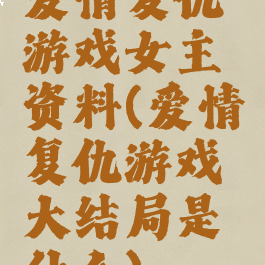 爱情复仇
游戏女主
资料(爱情
复仇游戏
大结局是
什么)